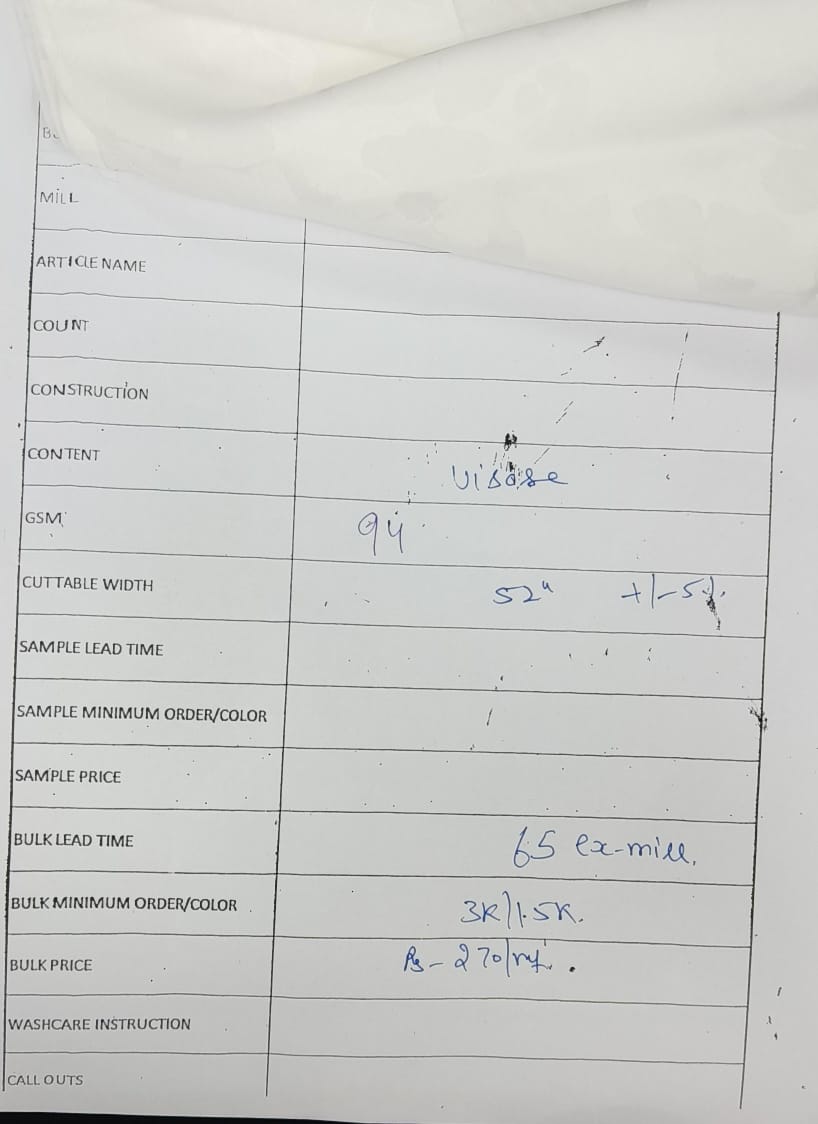 MILL
ARTICLE NAME
COUNT
CONSTRUCTION
CONTENT
GSM 94
CUTTABLE WIDTH 52" +/-5%.
SAMPLE LEAD TIME
SAMPLE MINIMUM ORDER/COLOR
SAMPLE PRICE
BULK LEAD TIME 65 ex-mill.
BULK MINIMUM ORDER/COLOR 3K/1.5K.
BULK PRICE Rs-270/
WASHCARE INSTRUCTION
CALL OUTS